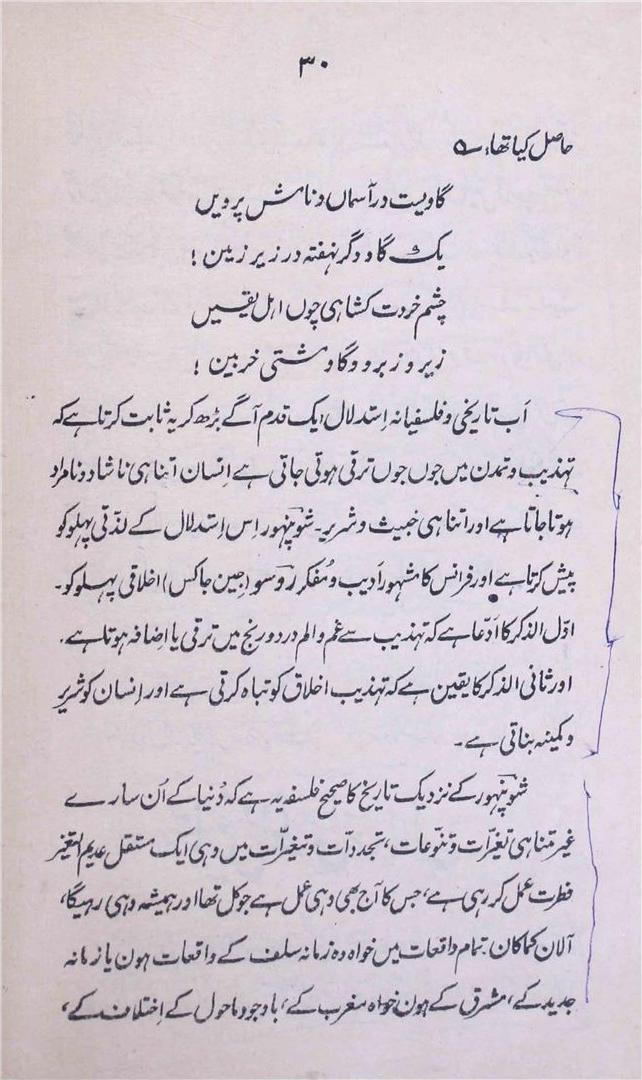 ۳۰
حاصل کیا تھا، ؎
گاویست در آسماں و نامش پرویں
یک گاو دگر نہفتہ در زیر زمین !
چشم خردت کشاہی چوں اہل یقیں
زیر و زبر دو گاو مشتی خر بین !
اَب تاریخی و فلسفیانہ اِستدلال ایک قدم آگے بڑھ کر یہ ثابت کرتا ہے کہ
تہذیب و تمدن میں جوں جوں ترقی ہوتی جاتی ہے اِنسان اتنا ہی ناشاد و نامراد
ہوتا جاتا ہے اور اتنا ہی خبیث و شریر۔ شوپنہور اِس اِستدلال کے لذتی پہلو کو
پیش کرتا ہے اور فرانس کا مشہور اَدیب و مُفکر روسو (جین جاکس) اخلاقی پہلو کو۔
اوّل الذکر کا اَدّعا ہے کہ تہذیب سے غم و الم درد و رنج میں ترقی یا اِضافہ ہوتا ہے۔
اور ثانی الذکر کا یقین ہے کہ تہذیب اخلاق کو تباہ کرتی ہے اور اِنسان کو شریر
و کمینہ بناتی ہے۔
شوپنہور کے نزدیک تاریخ کا صحیح فلسفہ یہ ہے کہ دُنیا کے اُن سارے
غیر متناہی تغیرّات و تنوّعات، تجددات و تغیرّات میں وہی ایک مستقل عدیم التغیر
فطرت عمل کر رہی ہے، جس کا آج بھی وہی عمل ہے جو کل تھا اور ہمیشہ وہی رہیگا،
آلان کماکان۔ تمام واقعات میں خواہ وہ زمانہ سلف کے واقعات ہون یا زمانہ
جدید کے، مشرق کے ہون خواہ مغرب کے، باوجود ماحول کے اِختلاف کے،